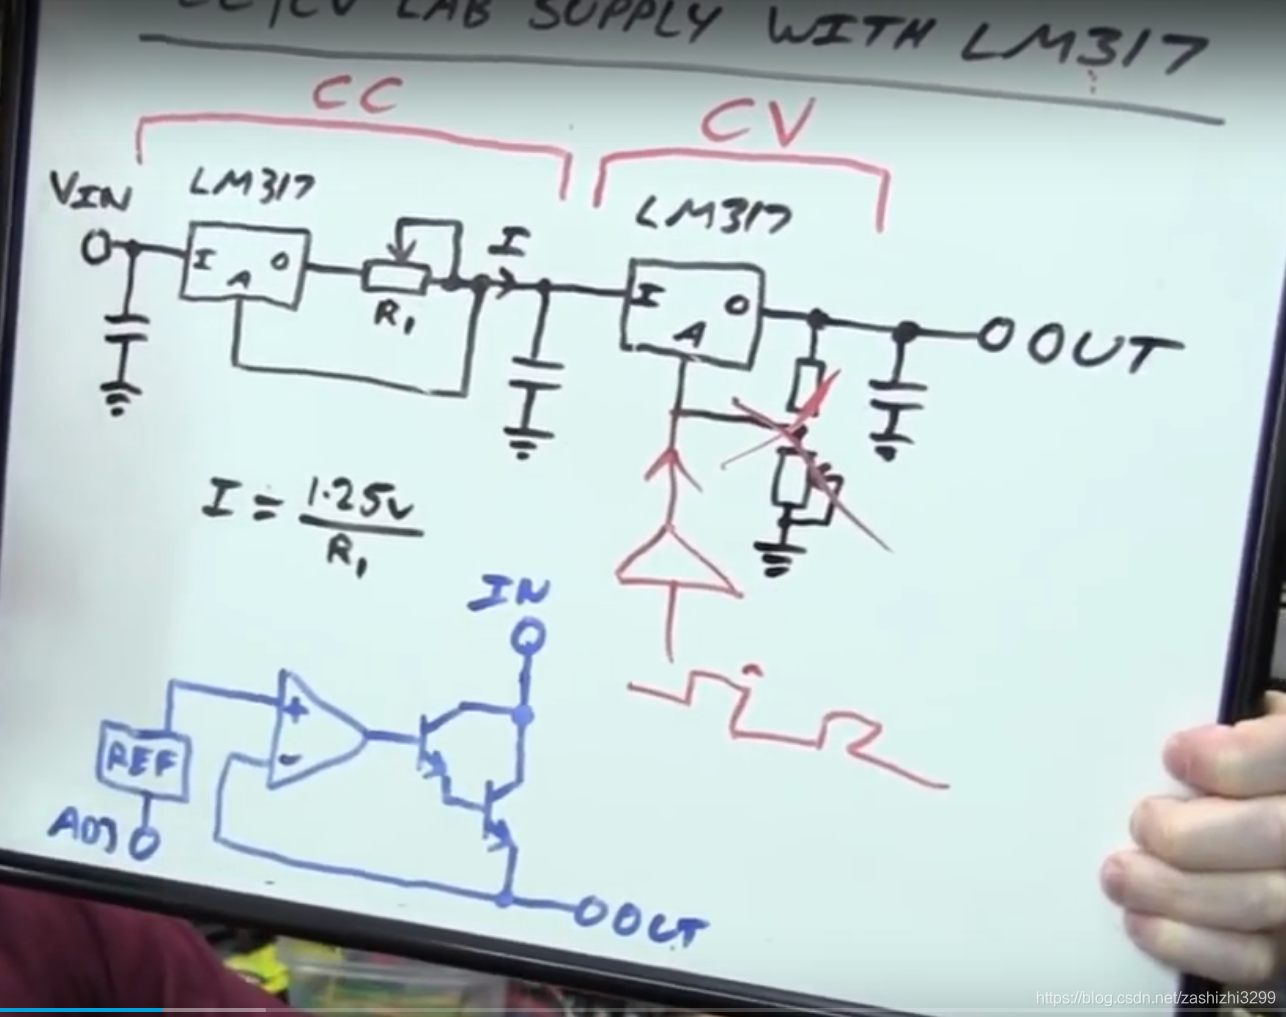 CC/CV LAB SUPPLY WITH LM317
CC
CV
VIN
LM317
LM317
I O
A
R1
I
I O
A
OUT
I = 1.25V
R1
IN
+
-
REF
ADJ
OUT
https://blog.csdn.net/zashizhi3299